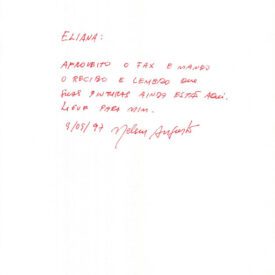 ELIANA:
APROVEITO O FAX E MANDO
O RECIBO E LEMBRO QUE
SUAS PINTURAS AINDA ESTÃ AQUI.
LIGUE PARA MIM.
9/05/97 Nelson Augusto